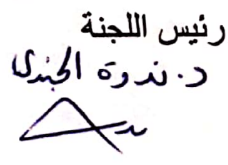 رئيس اللجنة
د. ندوة الجندي